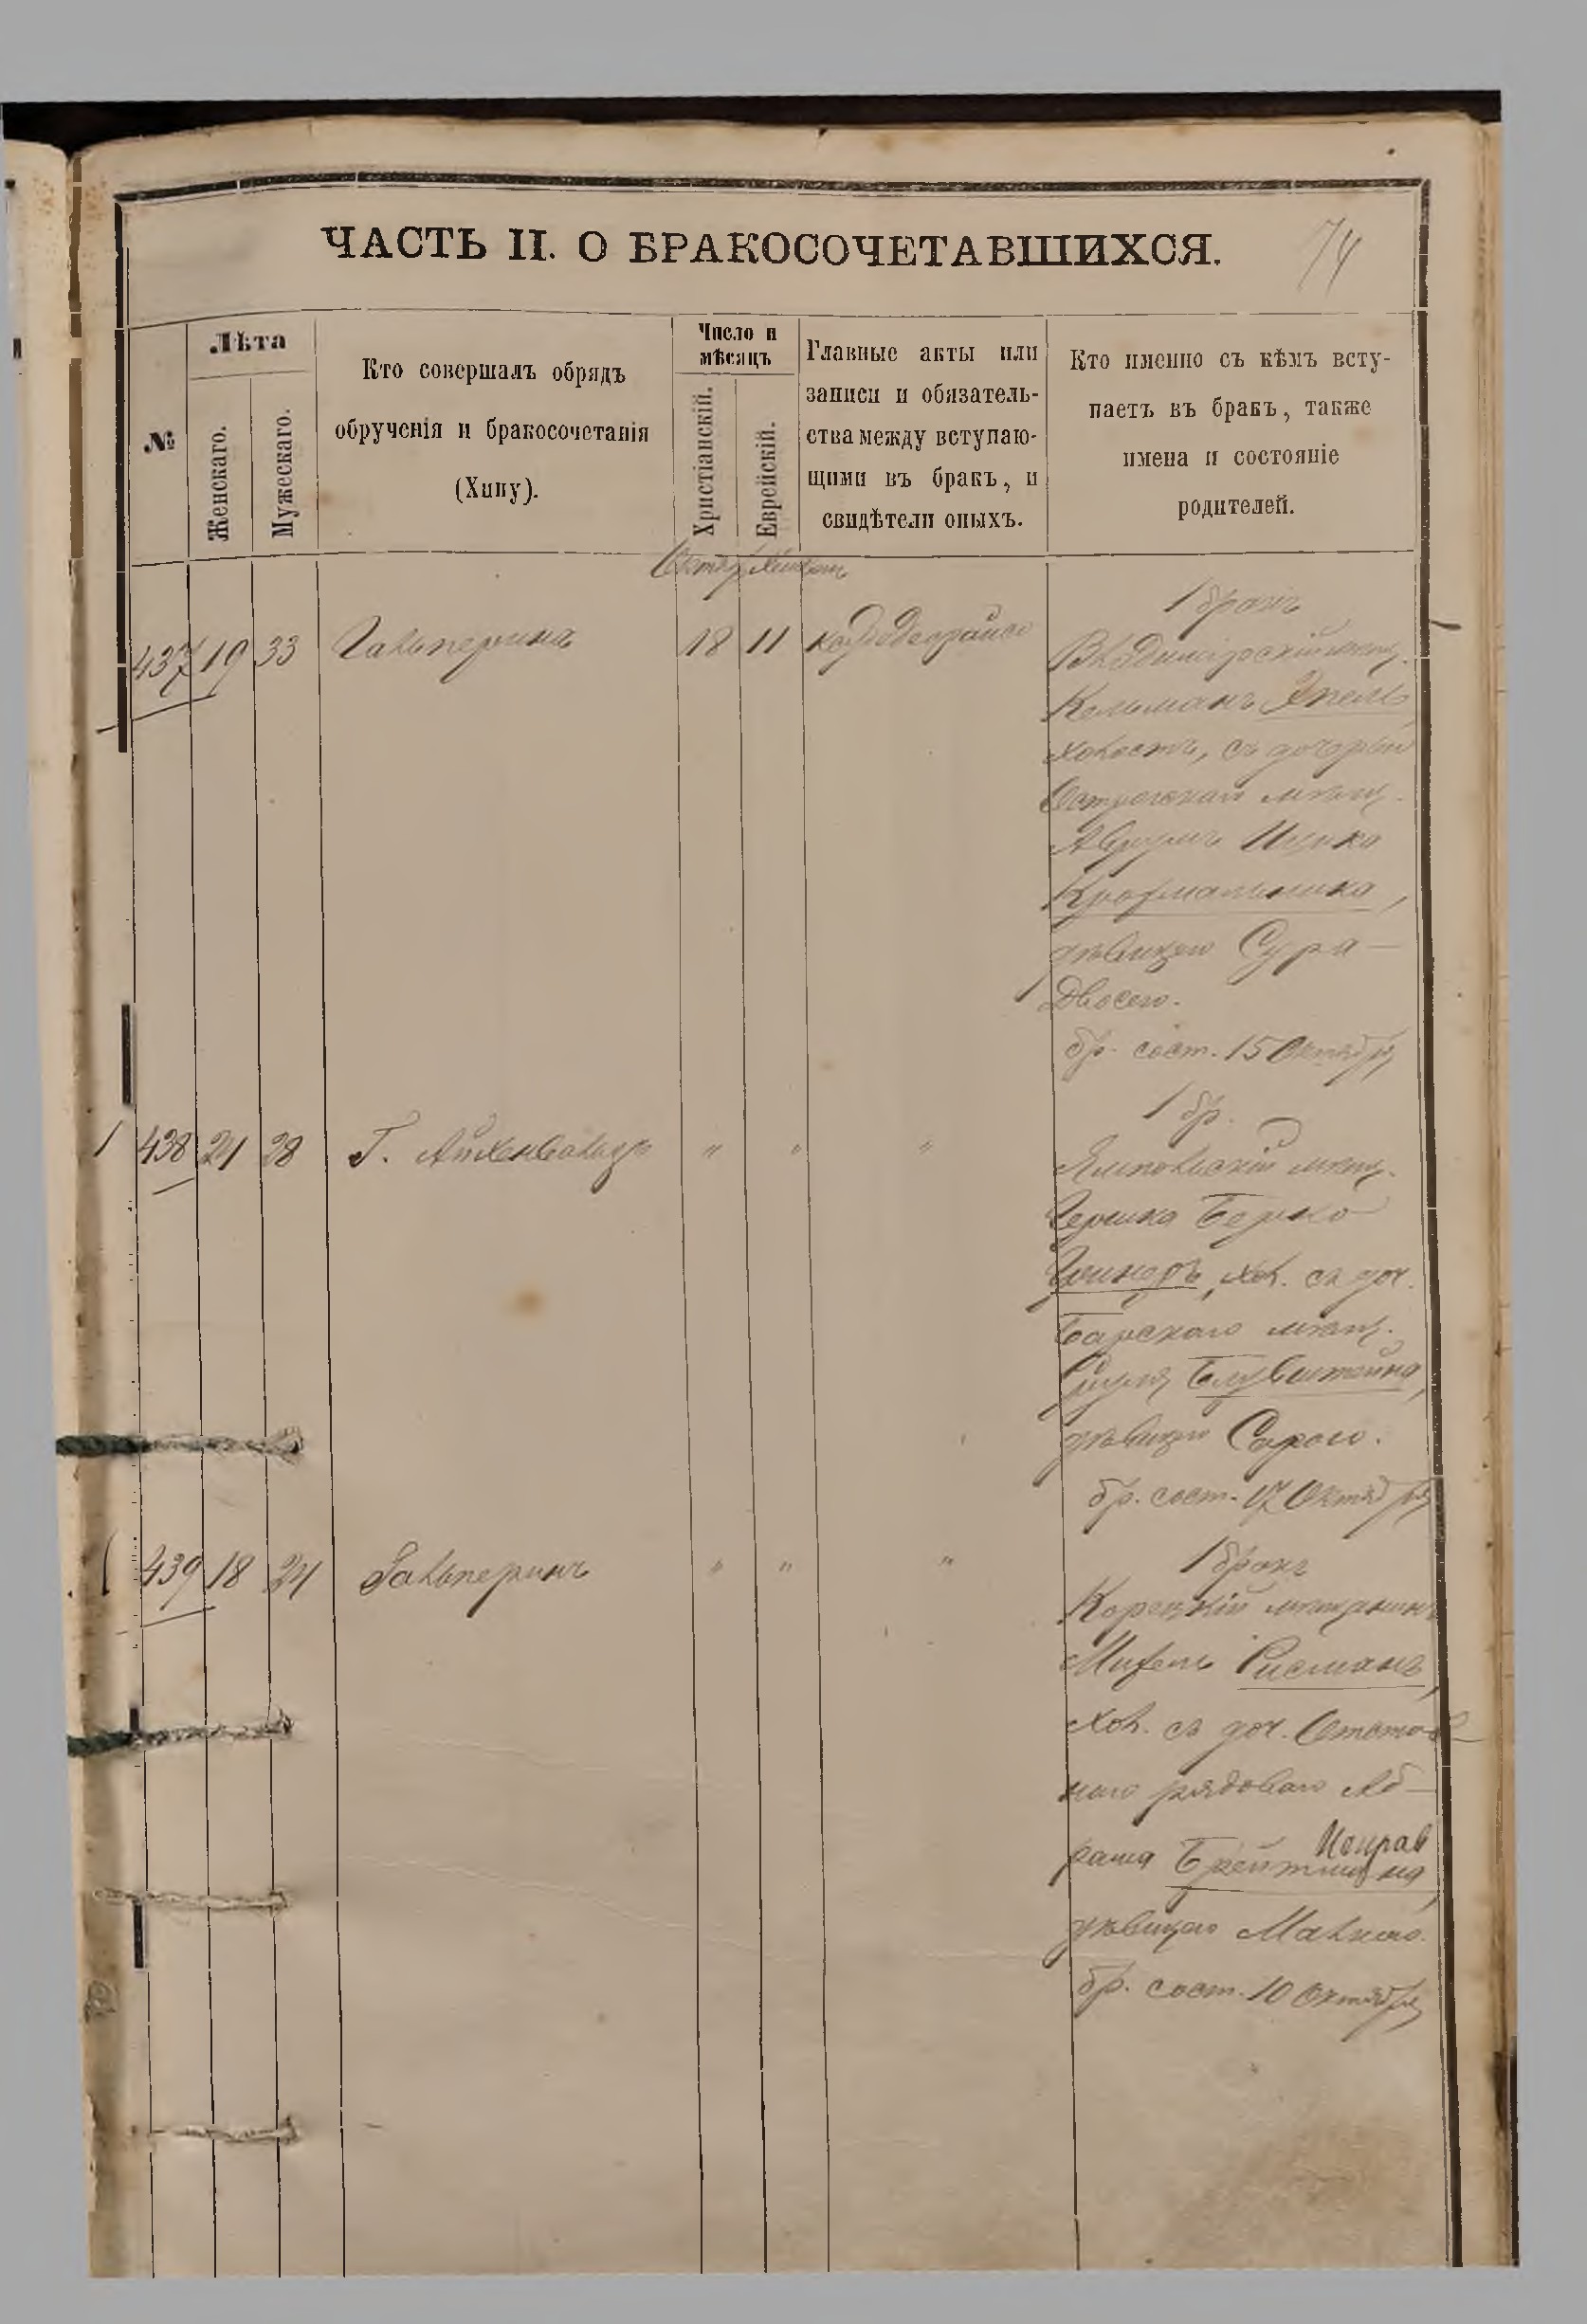 ЧАСТЬ II. О БРАКОСОЧЕТАВШИХСЯ.
74
№
Лѣта
Женскаго.
Мужескаго.
Кто совершалъ обрядъ
обрученія и бракосочетанія
(Хипу).
Число и
мѣсяцъ
Христіанскій.
Еврейскій.
Главные акты или
записи и обязатель-
ства между вступаю-
щими въ бракъ, и
свидѣтели оныхъ.
Кто именно съ кѣмъ всту-
паетъ въ бракъ, также
имена и состояніе
родителей.
437 19 33 Гальперинъ 18 11
1 бракъ
Владимірскій мѣщ.
Кельманъ
холостъ, съ дочерью
Острогскаго мѣщ.
Аврумъ Ицика
Крохмальника,
дѣвицею Сура-
Двосею.
бр. сост. 15 Октября
438 21 28 Г. Айхенвальдъ " " "
1 бр.
Ямпольскій мѣщ.
Гершко Берко
хол. съ доч.
Барскаго мѣщ.
Блувштейна,
дѣвицею Сарою.
бр. сост. 17 Октября
439 18 24 Гальперинъ " " "
1 бракъ
Корецкій мѣщанинъ
Рисманъ,
хол. съ доч. Отстав-
наго рядоваго Аб-
рама
дѣвицею Малкою.
бр. сост. 10 Октября